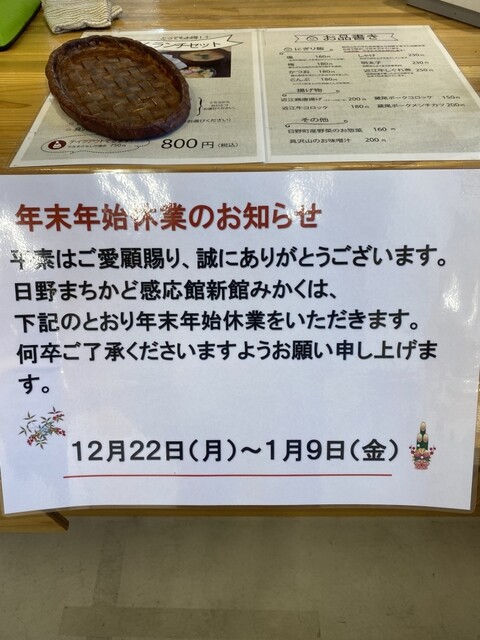 ランチセット
800円(税込)
お品書き
おにぎり
梅
180円
しゃけ
230円
明太子
230円
かつお 180円
こんぶ 180円
揚げ物
200円
蔵尾ポークコロッケ 150円
近江牛コロッケ 180円
蔵尾ポークメンチカツ 200円
その他
日野町産野菜のお惣菜 160円
具沢山のお味噌汁 200円
年末年始休業のお知らせ
平素はご愛顧賜り、誠にありがとうございます。
日野まちかど感応館新館みかくは、
下記のとおり年末年始休業をいただきます。
何卒ご了承くださいますようお願い申し上げま
す。
12月22日(月)～1月9日(金)